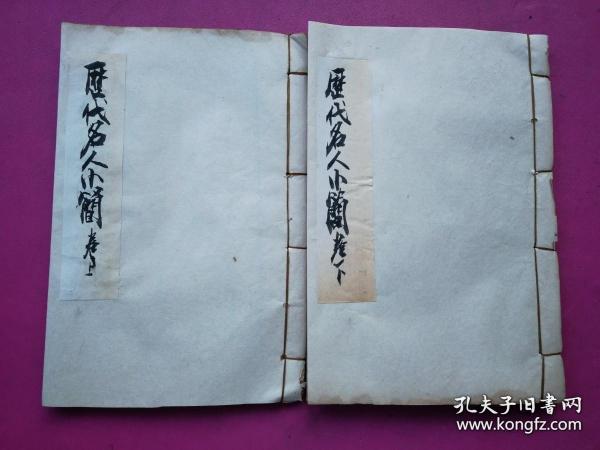 歷代名人小簡 卷上
歷代名人小簡 卷下
孔夫子旧书网
www.kongfz.com